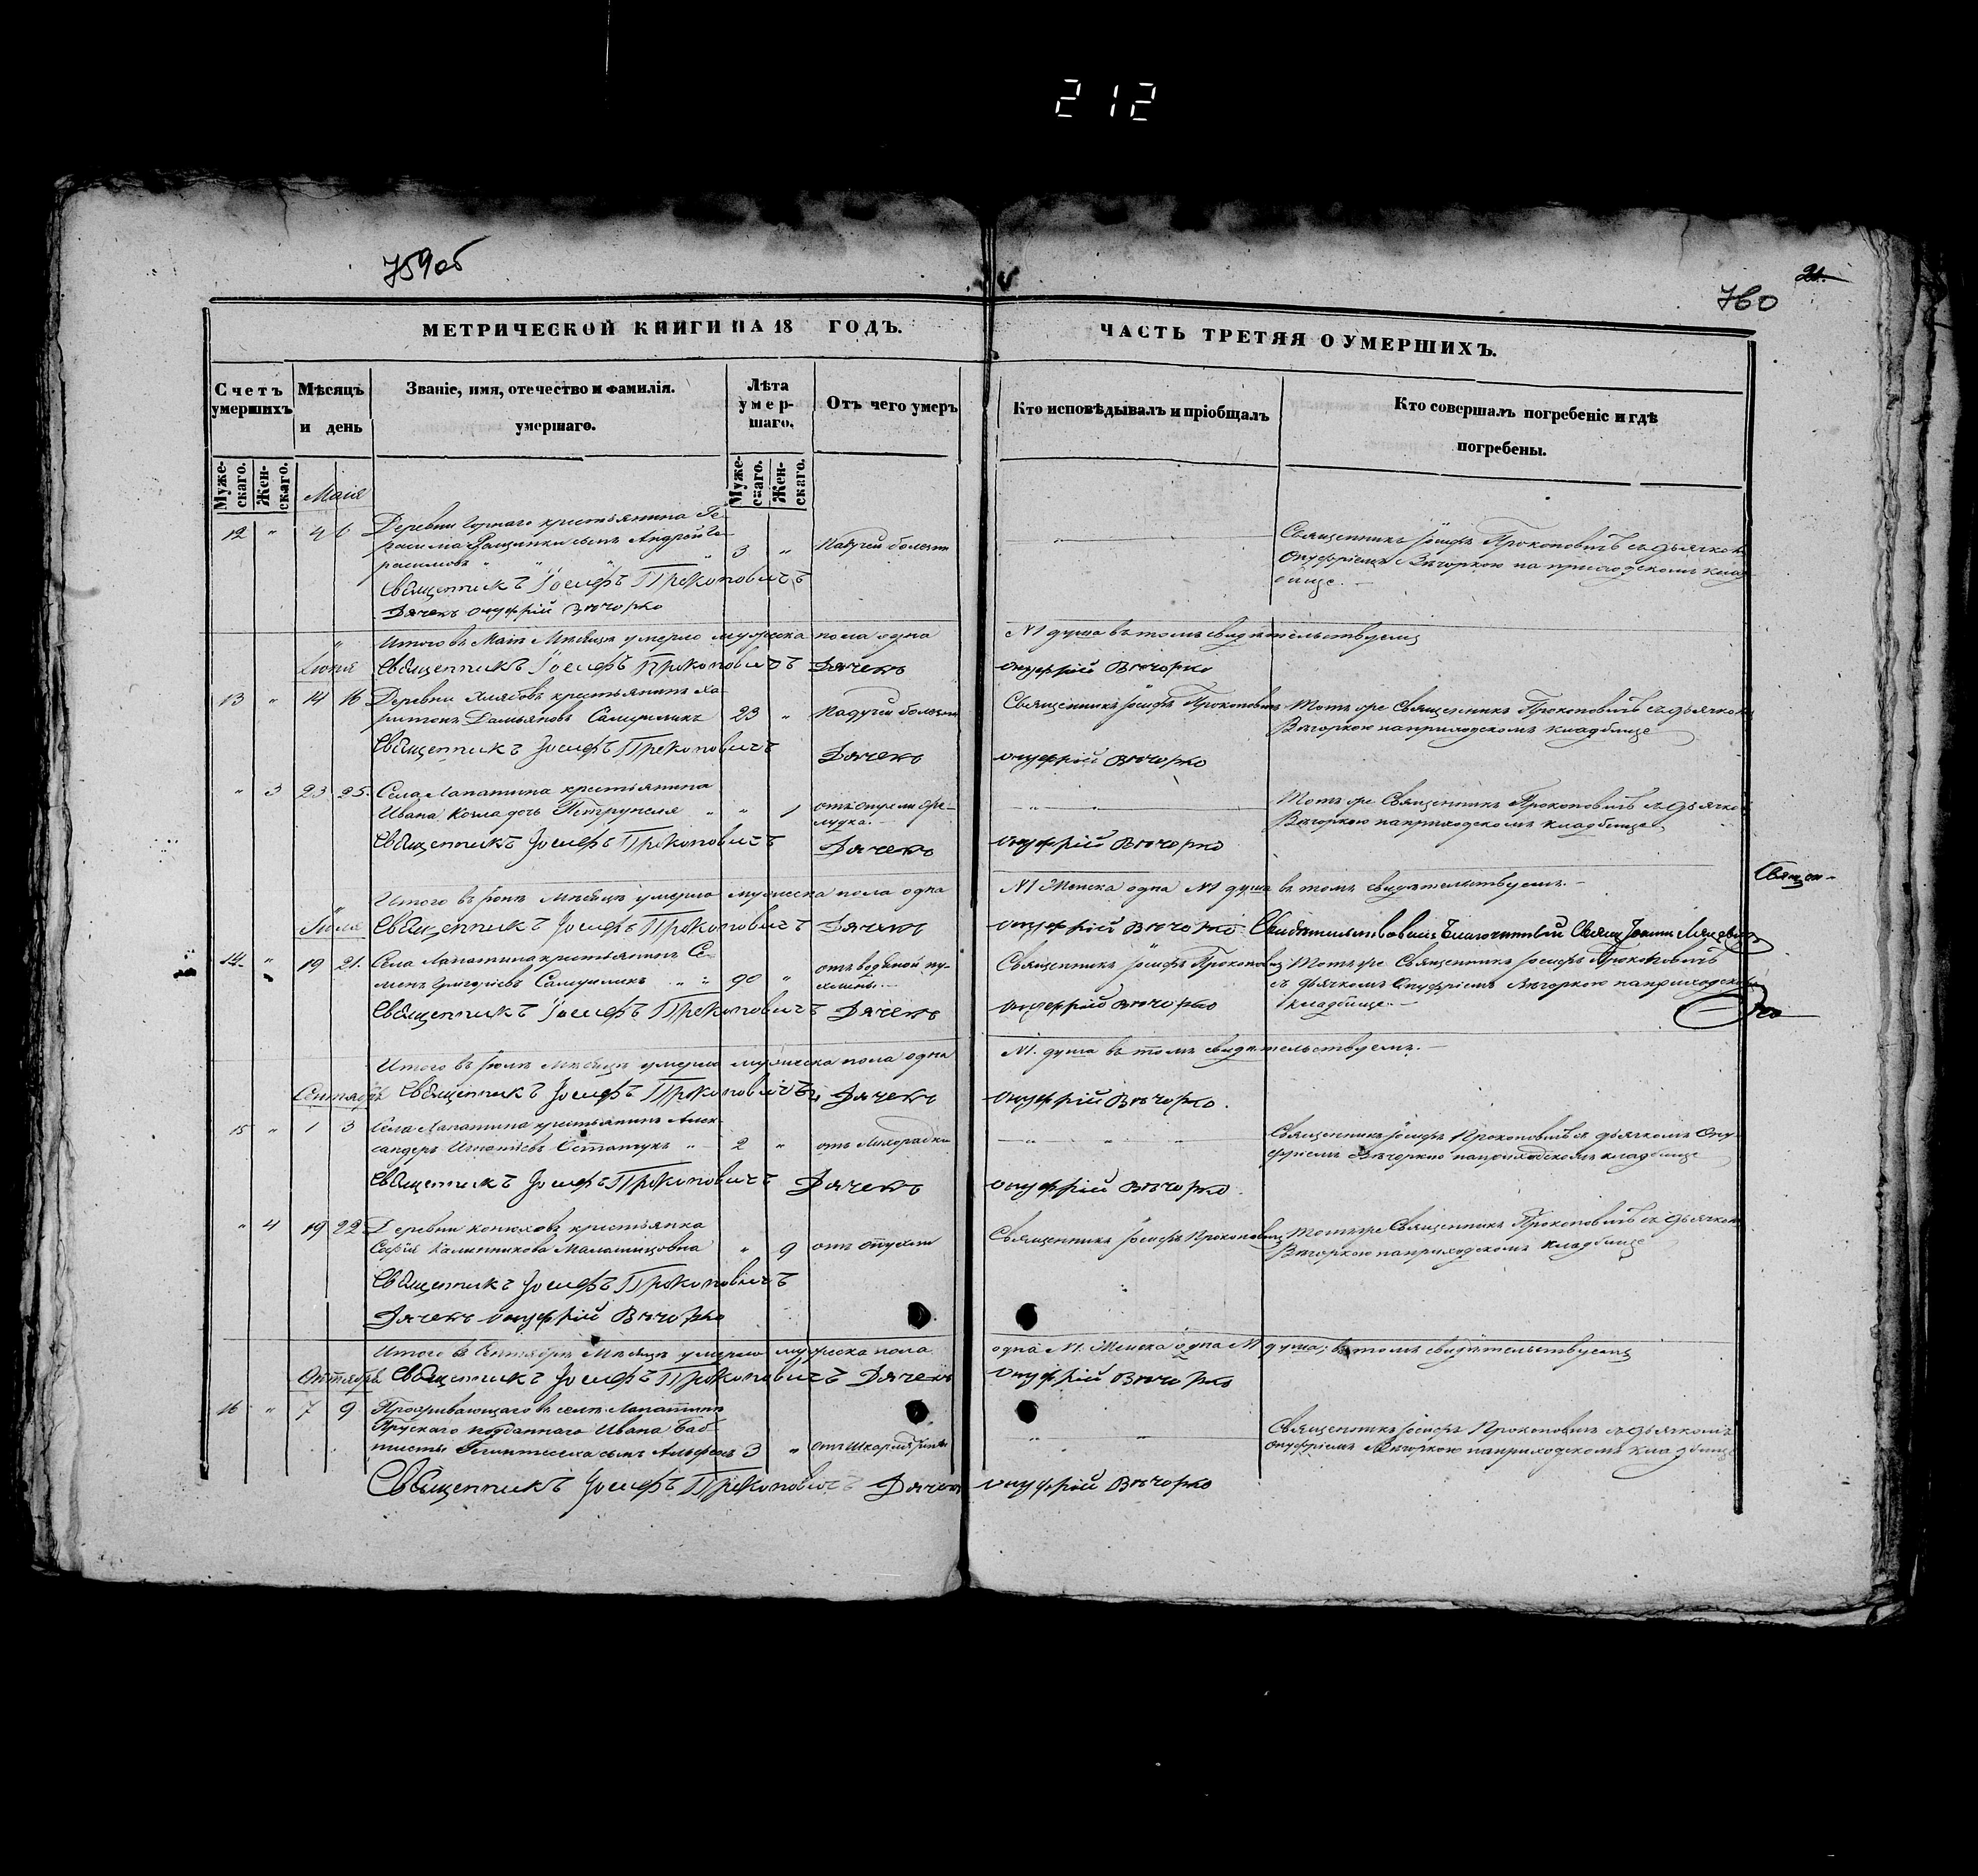 212
759об
21.
760
МЕТРИЧЕСКОЙ КНИГИ НА 18 ГОДЪ.
ЧАСТЬ ТРЕТЯЯ О УМЕРШИХЪ.
Счетъ умершихъ
Мѣсяцъ и день
Званіе, имя, отечество и фамилія. умершаго.
Лѣта умер-шаго.
Отъ чего умеръ
Кто исповѣдывалъ и пріобщалъ
Кто совершалъ погребеніе и гдѣ погребены.
Муже-скаго.
Жен-скаго.
Муже-скаго.
Жен-скаго.
Маія
12 " 4 6 Деревни крестьянина Ге-
расима сынъ Андрей Ге-
расимовъ " 3 " Падучей болезни
Священникъ Іосифъ Прокоповичъ съ дьячкомъ
Онуфріемъ Вѣчоркою на приходскомъ клад-
бище.
Священникъ Іосифъ Прокоповичъ
Дячекъ Онуфрій Вѣчорко
Итого въ Маіи Мѣсяцѣ умерло мужеска пола одна №1 душа въ томъ свидѣтельствуемъ
Іюня Священникъ Іосифъ Прокоповичъ Дячекъ Онуфрій Вѣчорко
13 " 14 16 Деревни крестьянинъ Ха-
ритонъ Дамьяновъ 23 " Падучей болезни
Священникъ Іосифъ Прокоповичъ
Тотъ же Священникъ Прокоповичъ съ дьячкомъ
Вѣчоркою на приходскомъ кладбище
Священникъ Іосифъ Прокоповичъ Дячекъ Онуфрій Вѣчорко
" 3 23 25. Села Лапатина крестьянина
Ивана дочь Петрунеля " " 1 отъ
Тотъ же Священникъ Прокоповичъ съ дьячкомъ
Вѣчоркою на приходскомъ кладбище
Священникъ Іосифъ Прокоповичъ Дячекъ Онуфрій Вѣчорко
Священ-
Итого въ Іюнѣ Мѣсяцѣ умерло мужеска пола одна №1 Женска одна №1 душа въ томъ свидѣтельствуемъ.
Іюля Священникъ Іосифъ Прокоповичъ Дячекъ Онуфрій Вѣчорко Свидѣтельствовалъ Благочинный Священ Іоаннъ
14. " 19 21. Села Лапатина крестьянинъ Се-
менъ Григоріевъ " " 90 " отъ водяной пу-
Священникъ Іосифъ Прокоповичъ
Тотъ же Священникъ Іосифъ Прокоповичъ
съ дьячкомъ Онуфріемъ Вѣчоркою на приходскомъ
кладбище.
Священникъ Іосифъ Прокоповичъ Дячекъ Онуфрій Вѣчорко
Итого въ Іюлѣ Мѣсяцѣ умерло мужеска пола одна №1. душа въ томъ свидѣтельствуемъ.
Сентябрь Священникъ Іосифъ Прокоповичъ Дячекъ Онуфрій Вѣчорко.
15 " 1 3 Села Лапатина крестьянинъ Алек-
сандръ Игнатіевъ " 2 " отъ Лихорадки
Священникъ Іосифъ Прокоповичъ съ дьячкомъ Ону-
фріемъ Вѣчоркою на приходскомъ кладбище
Священникъ Іосифъ Прокоповичъ Дячекъ Онуфрій Вѣчорко.
" 4 19 22 Деревни Конюховъ крестьянка
Софія Калинникова " 9 отъ опухли
Священникъ Іосифъ Прокоповичъ
Тотъ же Священникъ Прокоповичъ съ дьячкомъ
Вѣчоркою на приходскомъ кладбище
Священникъ Іосифъ Прокоповичъ
Дячекъ Онуфрій Вѣчорко
Итого въ Сентябрѣ Мѣсяцѣ умерло мужеска пола одна №1. Женска одна №1 душа; въ томъ свидѣтельствуемъ
Октябрь Священникъ Іосифъ Прокоповичъ Дячекъ Онуфрій Вѣчорко
16 " 7 9 Проживающаго въ селѣ Лапатинѣ
Прускаго подданнаго Ивана Бап-
тисты сынъ 3 " отъ Шкарлятины
Священникъ Іосифъ Прокоповичъ съ дьячкомъ
Онуфріемъ Вѣчоркою на приходскомъ кладбище
Священникъ Іосифъ Прокоповичъ Дячекъ Онуфрій Вѣчорко